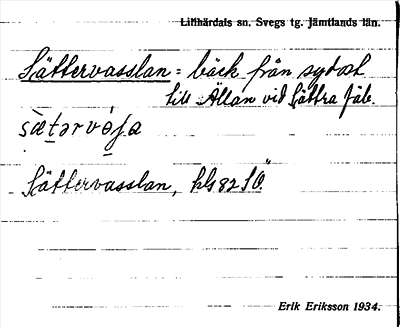 Lillhärdals sn. Svegs tg. Jämtlands län.
Sättervasslan = bäck från sydost
till Ällan vid Sättra fäb.
Sättervasslan, kbl 82 SO
Erik Eriksson 1934.